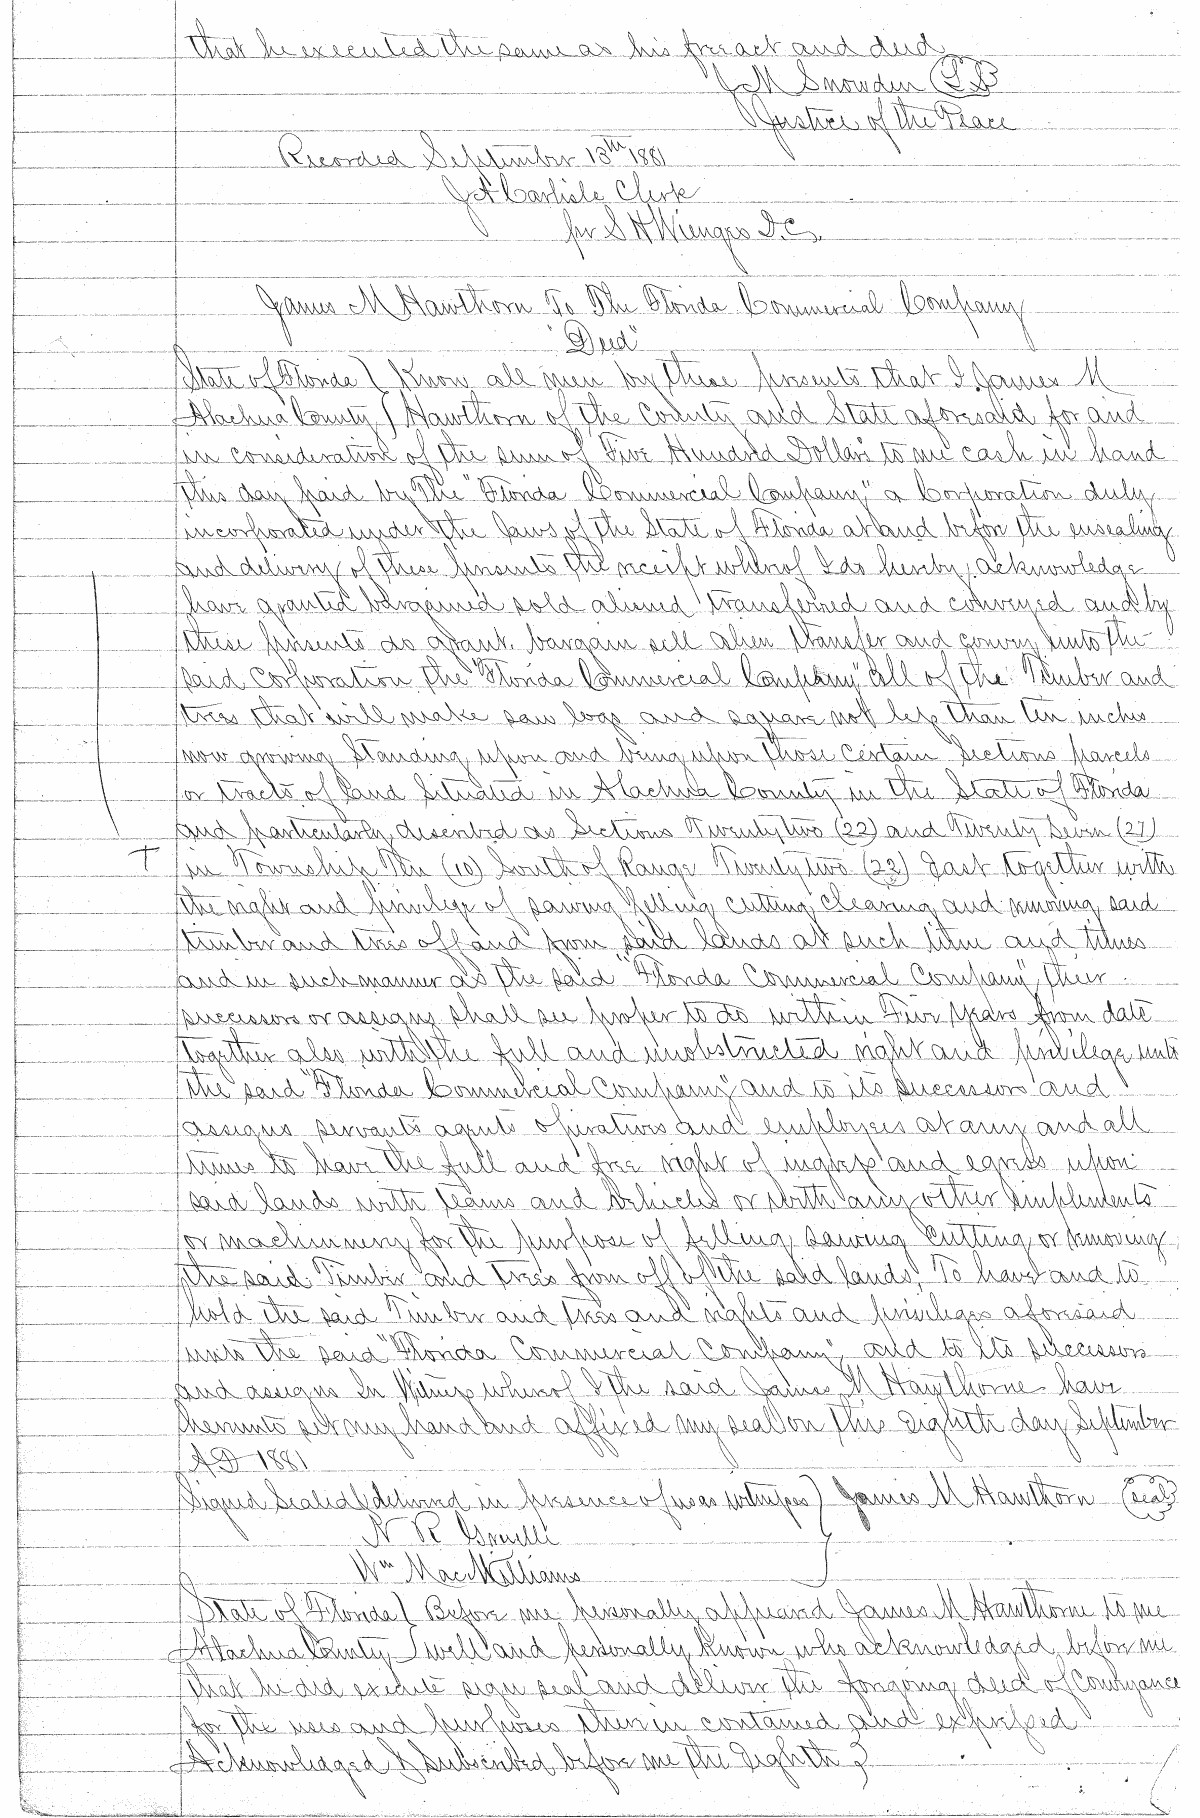 that he executed the same as his free act and deed
J M Snowden (LS)
Justice of the Peace
Recorded September 13th 1881
J A Carlisle Clerk
per S H Wienges D.C.
James M Hawthorn To The Florida Commercial Company
"Deed"
State of Florida } Know all men by these presents that I James M
Alachua County } Hawthorn of the County and State aforesaid for and
in consideration of the sum of Five Hundred Dollars to me cash in hand
this day paid by The "Florida Commercial Company" a Corporation duly
incorporated under the laws of the State of Florida at and before the ensealing
and delivery of these presents the receipt whereof I do hereby acknowledge
have granted bargained sold aliened transferred and conveyed and by
these presents do grant, bargain sell alien transfer and convey unto the
said Corporation the "Florida Commercial Company" all of the Timber and
trees that will make saw logs and square not less than ten inches
now growing standing upon and being upon those certain Sections parcels
or tracts of land situated in Alachua County in the State of Florida
and particularly described as Sections Twenty two (22) and Twenty Seven (27)
T in Township Ten (10) South of Range Twenty two (22) East together with
the right and privilege of sawing felling cutting clearing and removing said
timber and trees off and from said lands at such time and times
and in such manner as the said "Florida Commercial Company", their
successors or assigns shall see proper to do within Five years from date
together also with the full and unobstructed right and privilege unto
the said "Florida Commercial Company" and to its successors and
assigns servants agents operatives and employees at any and all
times to have the full and free right of ingress and egress upon
said lands with teams and vehicles or with any other implements
or machinnery for the purpose of felling sawing cutting or removing
the said Timber and trees from off of the said lands, To have and to
hold the said Timber and trees and rights and privileges aforesaid
unto the said "Florida Commercial Company", and to its successors
and assigns In Witness whereof I the said James M Haythorne have
hereunto set my hand and affixed my seal on this eighth day September
AD 1881
Signed Sealed & delivered in presence of us as witnesses } James M Hawthorn (seal)
N R Gruelle
Wm MacWilliams
State of Florida } Before me personally appeared James M Hawthorne to me
Alachua County } well and personally known who acknowledged before me
that he did execute sign seal and deliver the foregoing deed of Conveyance
for the uses and purposes therein contained and expressed
Acknowledged & subscribed before me the Eighth }